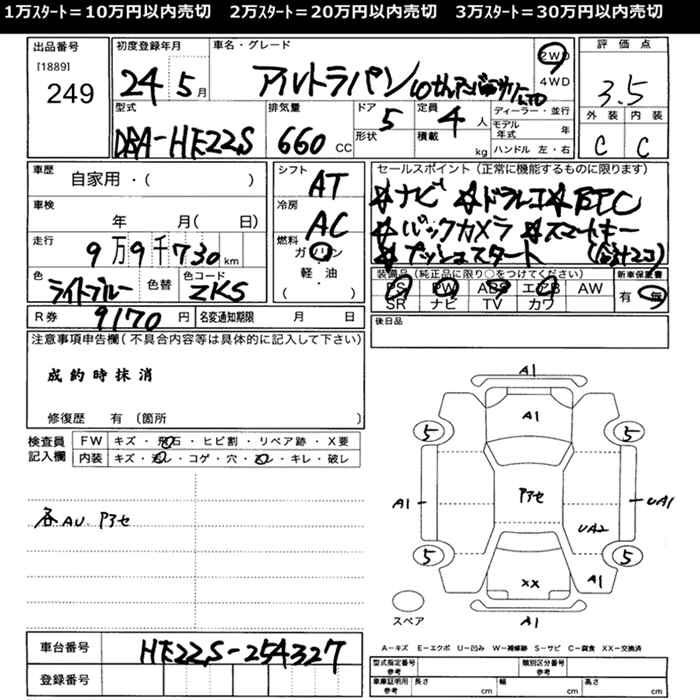 1万スタート=10万円以内売切 2万スタート=20万円以内売切 3万スタート=30万円以内売切
出品番号 初度登録年月 車名・グレード 2WD 4WD 評価点
[1889]
249 24 5月 アルトラパン 10thアニバーサリーLTD 3.5
型式 排気量 ドア 5 定員 4人 ディーラー・並行 外装 内装
DBA-HE22S 660CC 形状 積載 kg モデル年式 年 C C
ハンドル 左・右
車歴 自家用・( ) シフト AT セールスポイント(正常に機能するものに限ります)
☆ナビ ☆ドラレコ☆ETC
車検 年 月( 日) 冷房 AC ☆バックカメラ ☆スマートキー
走行 9万9千730km 燃料 ガソリン ☆プッシュスタート
軽・油
( )
色 ライトブルー 色替 色コード ZKS 装備品(純正品に限り○をつけてください) 新車保証書
PS PW ABS エアB AW 有 無
SR ナビ TV カワ
R券 9170円 名変通知期限 月 日 後日品
注意事項申告欄(不具合内容等は具体的に記入して下さい)
成約時抹消
修復歴 有(箇所 )
検査員記入欄 FW キズ・飛石・ヒビ割・リペア跡・X要
内装 キズ・汚レ・コゲ・穴・スレ・キレ・破レ
各AU. アセ
A1
A1
5 5
A1 アセ UA1
UA2
5 5
XX A1
スペア A1
A-キズ E-エクボ U-凹み W-補修跡 S-サビ C-腐食 XX-交換済
車台番号 HE22S-254327
登録番号
型式指定番号 参考 類別区分番号 参考
車庫証明用 参考 長さ cm 幅 cm 高さ cm